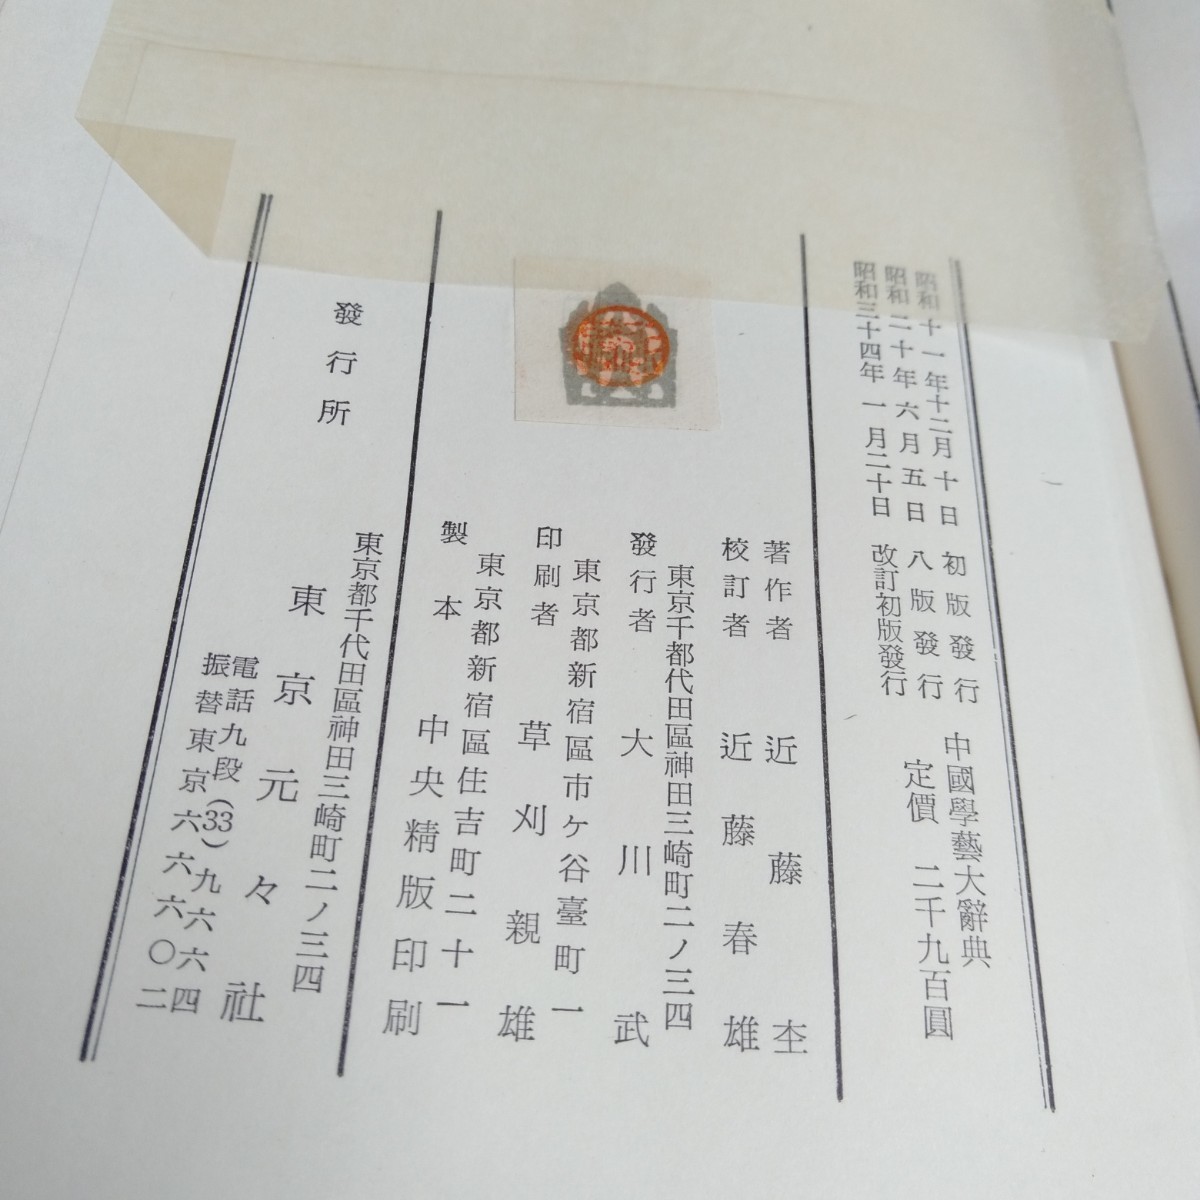 昭和十一年十二月十日 初版發行
昭和二十年六月五日 八版發行
昭和三十四年一月二十日 改訂初版發行
中國學藝大辭典
定價 二千九百圓
著作者 近藤杢
校訂者 近藤春雄
東京千都代田區神田三崎町二ノ三四
發行者 大川武
東京都新宿區市ケ谷臺町一
印刷者 草刈親雄
東京都新宿區住吉町二十一
製本 中央精版印刷
發行所
東京都千代田區神田三崎町二ノ三四
東京元々社
電話九段(33)九六六四
振替東京六六六〇二